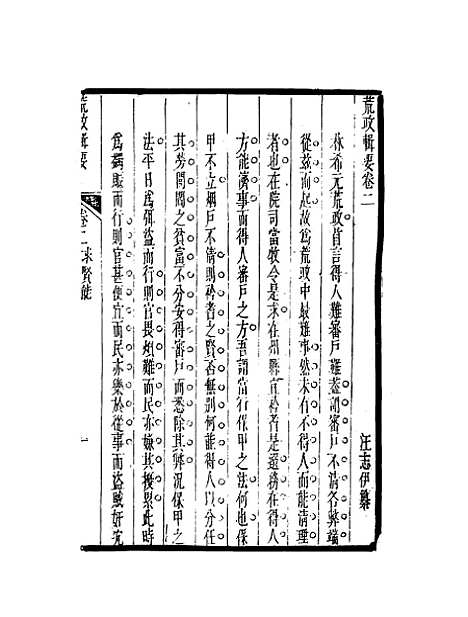 荒政輯要卷二
汪志伊纂
林希元荒政首言得人難審戶難蓋謂審戶不清各弊端
從茲而起故為荒政中最難事然未有不得人而能清理
者也在院司當敎令是求在州縣官矜耆是選務在得人
方能濟事而得人審戶之方吾謂當行保甲之法何也保
甲不立烟戶不清則矜耆之賢否無別何能得人以分任
其勞閭閻之貧富不分安得審戶而悉除其弊況保甲之
法平日為弭盜而行則官畏煩難而民亦嫌其擾累此時
為蠲賑而行則官甚便宜而民亦樂於從事而盜賊奸宄
荒政輯要
卷二求賢能
一